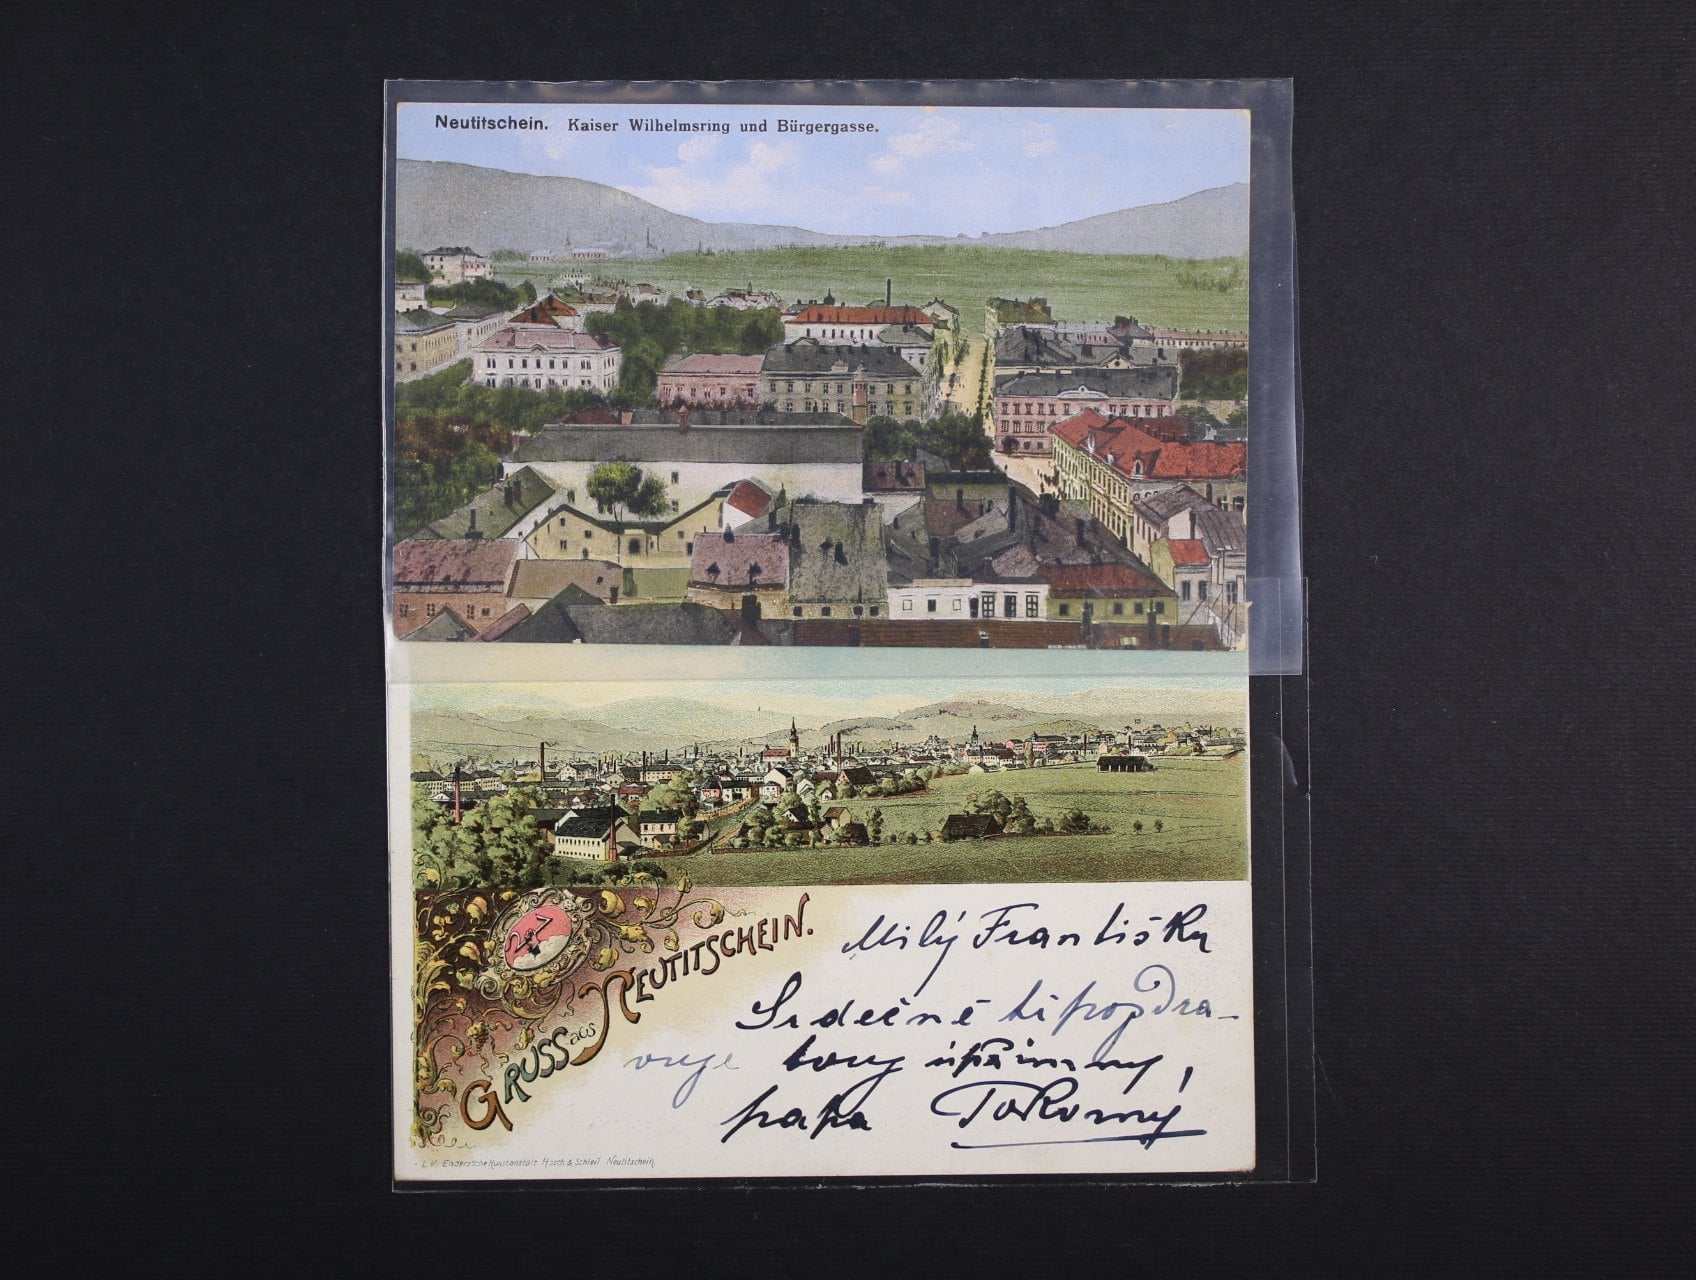 Neutitschein. Kaiser Wilhelmsring und Bürgergasse.
GRUSS aus NEUTITSCHEIN.
Milý Františku
Srdečně ti pozdra-
vuje tvůj upřímný,
papa Pokorný
L. V. Enders'sche Kunstanstalt Rosch & Schleif Neutitschein